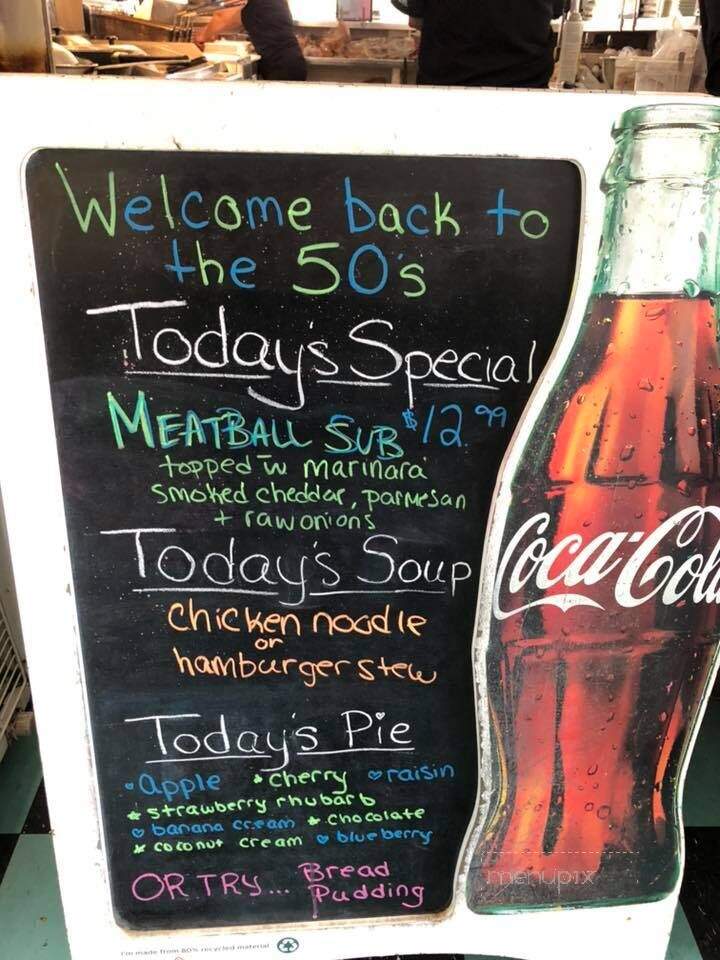 Welcome back to
the 50's
Today's Special
MEATBALL SUB $12.99
topped w marinara
smoked cheddar, parmesan
+ raw onions
Today's Soup
chicken noodle
or
hamburger stew
Today's Pie
• apple • cherry ♥ raisin
* strawberry rhubarb
♥ banana cream * chocolate
* coconut cream ♥ blueberry
OR TRY... Bread
Pudding
Coca-Cola
menupix
I'm made from 80% recycled material